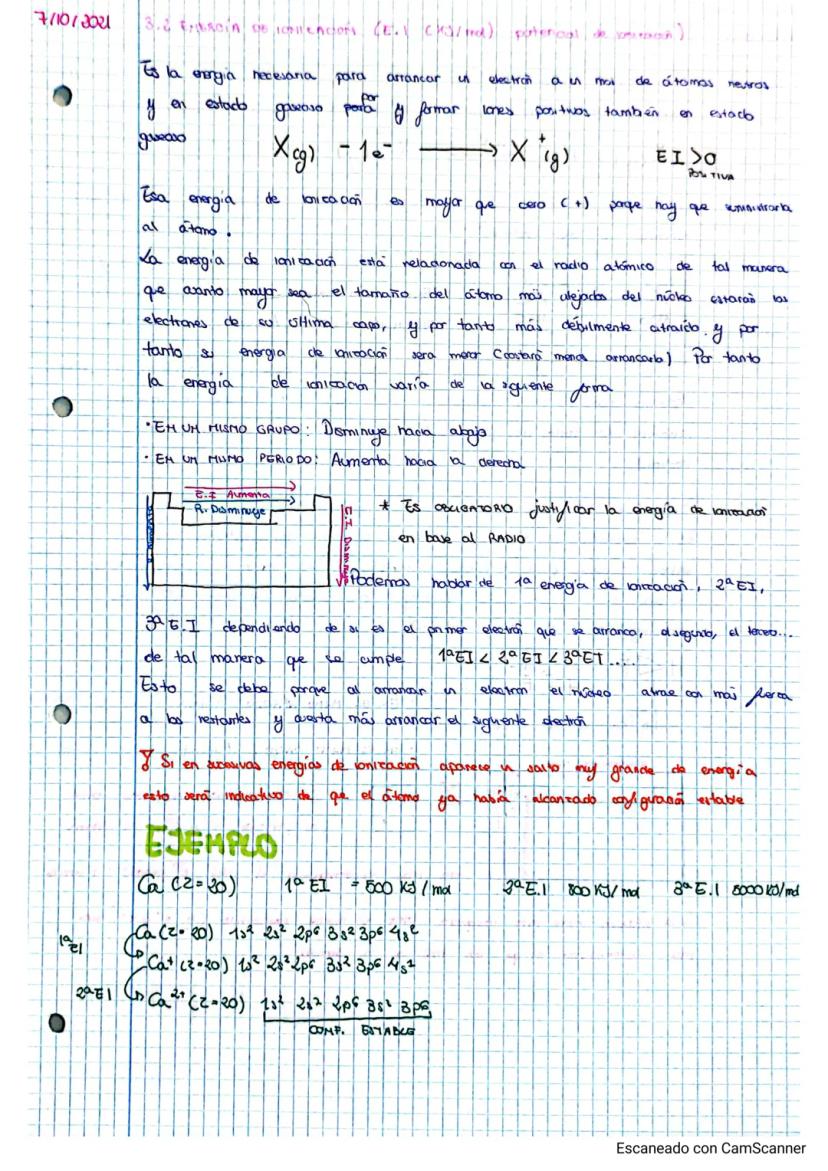 7/10/2021
3.2 Energía de ionización (E.I (KJ/mol) potencial de ionización)
Es la energía necesaria para arrancar un electrón a un mol de átomos neutros
y en estado gaseoso para por y formar iones positivos también en estado
gaseoso
X(g) - 1e⁻ ⟶ X⁺(g) EI>0
POSITIVA
Esa energía de ionización es mayor que cero (+) porque hay que suministrarla
al átomo.
La energía de ionización está relacionada con el radio atómico de tal manera
que cuanto mayor sea el tamaño del átomo más alejados del núcleo estarán los
electrones de su última capa, y por tanto más débilmente atraído y por
tanto su energía de ionización será menor (costará menos arrancarlo) Por tanto
la energía de ionización varía de la siguiente forma
· EN UN MISMO GRUPO: Disminuye hacia abajo
· EN UN MISMO PERIODO: Aumenta hacia la derecha
E.I Aumenta
R. Disminuye
R. Aumenta
E.I. Disminuye
* Es OBLIGATORIO justificar la energía de ionización
en base al RADIO
Podemos hablar de 1ª energía de ionización, 2ª EI,
3ª E.I dependiendo de si es el primer electrón que se arranca, el segundo, el tercero...
de tal manera que se cumple 1ªEI < 2ªEI < 3ªEI....
Esto se debe porque al arrancar un electrón el núcleo atrae con más fuerza
a los restantes y cuesta más arrancar el siguiente electrón
Si en sucesivas energías de ionización aparece un salto muy grande de energía
esto será indicativo de que el átomo ya había alcanzado configuración estable
EJEMPLO
Ca (Z=20) 1ª EI = 500 KJ/mol 2ª E.I 800 KJ/mol 3ª E.I 5000 KJ/mol
Ca (Z=20) 1s² 2s² 2p⁶ 3s² 3p⁶ 4s²
1ª EI
Ca⁺ (Z=20) 1s² 2s² 2p⁶ 3s² 3p⁶ 4s²
2ª EI
Ca²⁺ (Z=20) 1s² 2s² 2p⁶ 3s² 3p⁶
CONF. ESTABLE
Escaneado con CamScanner